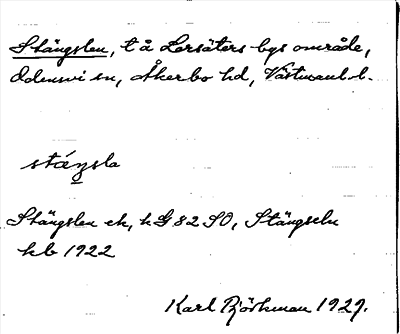 Stängslen, t å Lersäters bys område,
Odensvi sn, Åkerbo hd, Västmanl. l.
stäŋsla
Stängslen ek, hG 82 SO, Stängseln
hb 1922
Karl Björkman 1929.